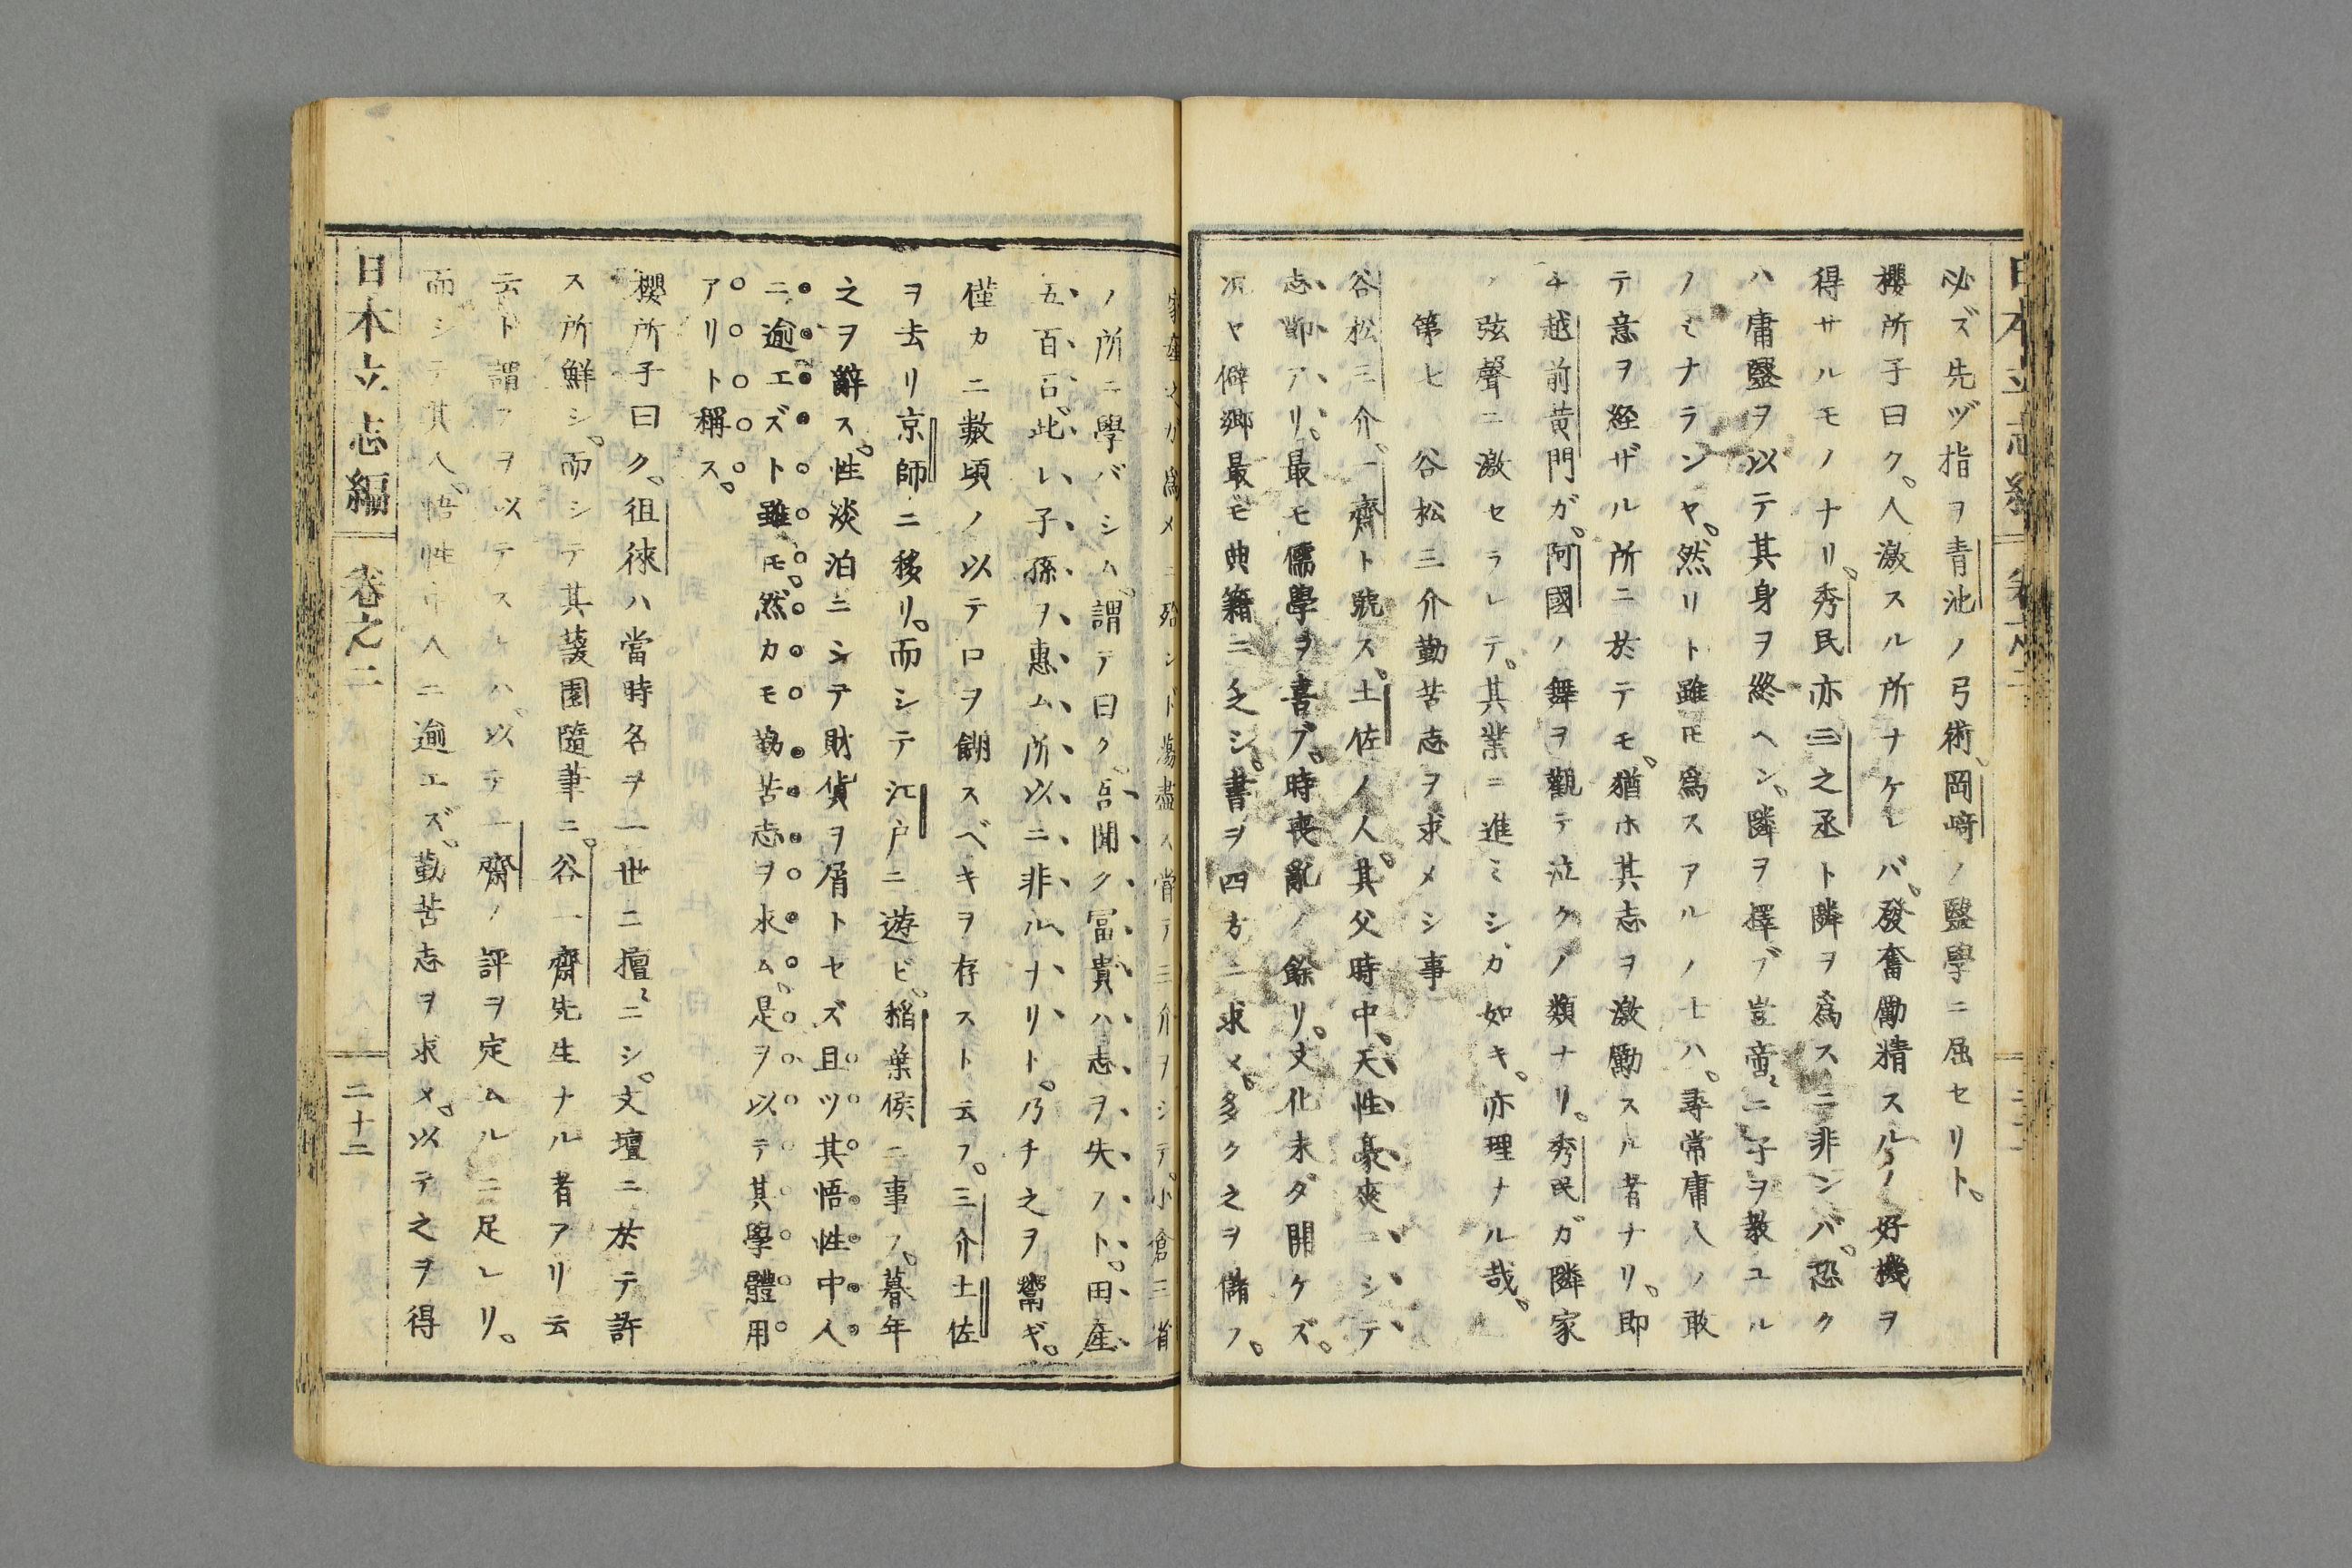 必ズ先ヅ指ヲ青池ノ弓術、岡﨑ノ醫學ニ屈セリト。
櫻所子曰ク。人激スル所ナケレバ。發奮勵精スルノ好機ヲ
得サルモノナリ。秀民亦三之丞ト隣ヲ爲スニ非ンバ。恐ク
ハ庸醫ヲ以テ其身ヲ終ヘン。隣ヲ擇ブ豈啻ニ子ヲ教ユル
ノミナランヤ。然リト雖モ爲スアルノ士ハ。尋常庸人ノ敢
テ意ヲ経ザル所ニ於テモ。猶ホ其志ヲ激勵スル者ナリ。即
チ越前黄門ガ。阿國ノ舞ヲ觀テ泣クノ類ナリ。秀民ガ隣家
ノ弦聲ニ激セラレテ。其業ニ進ミシカ如キ。亦理ナル哉。
第七 谷松三介勤苦志ヲ求メシ事
谷松三介。一齋ト號ス。土佐ノ人。其父時中。天性豪爽ニシテ
志節アリ。最モ儒學ヲ喜ブ。時喪亂ノ餘リ。文化未ダ開ケズ。
況ヤ僻郷最モ典籍ニ乏シ。書ヲ四方ニ求メ。多ク之ヲ儲フ。
家産之カ爲メニ殆ンド蕩盡ス嘗テ三介ヲシテ。小倉三省
ノ所ニ學バシム。謂テ曰ク。吾聞ク冨貴ハ志ヲ失フト。田産
五百石。此レ子孫ヲ惠ム所以ニ非ルナリト。乃チ之ヲ鬻ギ。
僅カニ數頃ノ以テ口ヲ餬スベキヲ存スト云フ。三介土佐
ヲ去リ京師ニ移リ。而シテ江戸ニ遊ビ。稲葉侯ニ事フ。暮年
之ヲ辭ス。性淡泊ニシテ財貨ヲ屑トセズ且ツ其悟性中人
ニ逾エズト雖モ。然カモ勤苦志ヲ求ム。是ヲ以テ其學體用
アリト稱ス。
櫻所子曰ク。徂徠ハ當時名ヲ一世ニ擅ニシ。文壇ニ於テ許
ス所鮮シ。而シテ其蘐園隨筆ニ。谷一齋先生ナル者アリ云
云ト謂フヲ以テスレハ。以テ一齋ノ評ヲ定ムルニ足レリ。
而シテ其人。悟性中人ニ逾エズ。勤苦志ヲ求メ。以テ之ヲ得
日本立志編 卷之二 二十二